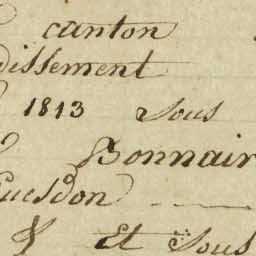 canton
dissement
1813 sous
Bonnair
uesdon
& Et sous